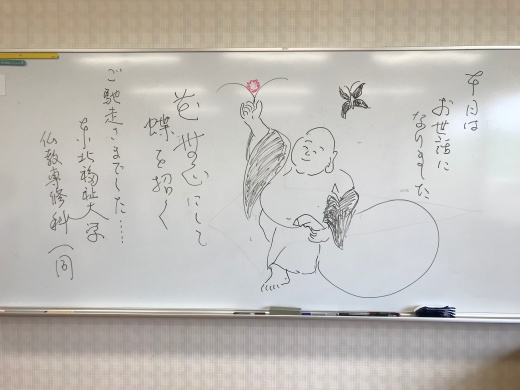 本日は
お世話に
なりました
花無心にして
蝶を招く
ご馳走さまでした……
東北福祉大学
仏教専修科 一同